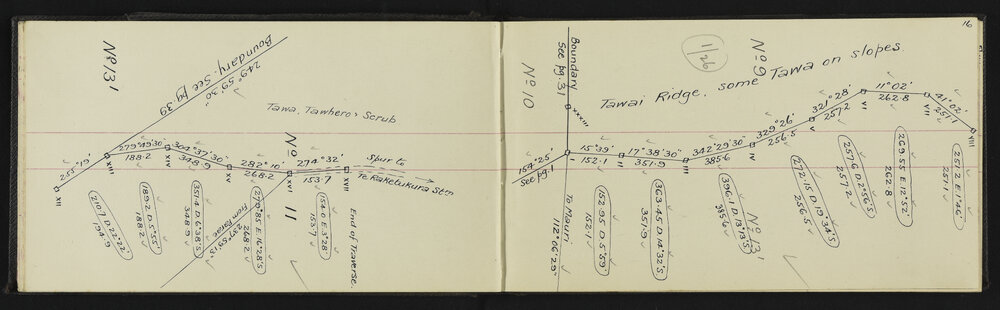 Nº 13 1
Boundary. See pg. 39
249° 59' 30"
Tawa, Tawhero, Scrub
Nº 11
255° 19'
XII
XIII
279°49'30"
188.2
XIV
304°37'30"
348.9
XV
282°10'
268.2
XVI
274°32'
153.7
XVII
Spur to
To Raketukura Stn
210.7 D.22°22'
194.9
189.2 D.5°55'
188.2
351.4 D.6°38'.5
348.9
279.85 E.16°28'.5
268.2
239°59'15"
154.0 E.3°28'
153.7
End of Traverse.
16
1/26
Nº 10
Boundary
See pg. 31
XXXIII
Nº 9
Tawai Ridge, some Tawa on slopes
154°25'
See pg. 1
15°39'
152.1
II
17°38'30"
351.9
III
342°29'30"
385.6
IV
329°26'
256.5
V
321°28'
257.2
VI
11°02'
262.8
VII
41°02'
251.1
VIII
To Mauri
112°06'29"
152.95 D.5°59'
152.1
363.45 D.14°32'.5
351.9
396.1 D.13°13'.5
385.6
Nº 13 1
272.15 D.19°34'.5
256.5
257.6 D.2°56'.5
257.2
269.55 E.12°52'
262.8
251.2 E.1°46'
251.1